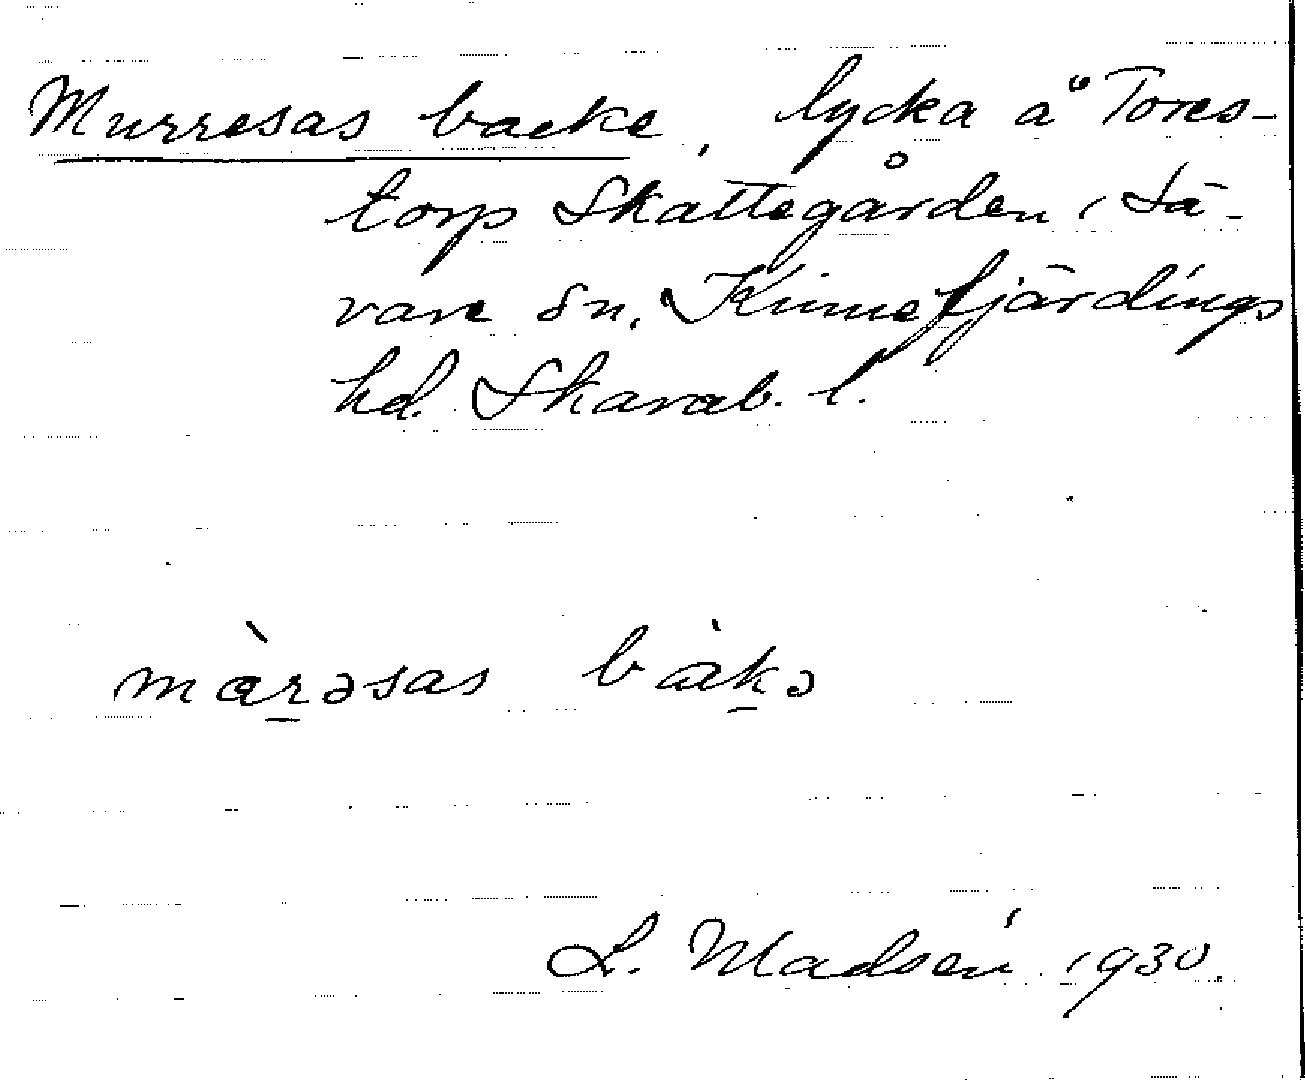 Murresas backe, lycka å Tores-
torp Skattegården, Sä-
vare sn, Kinnefjärdings
hd. Skarab. l.
màrəsas bàkə
L. Madsén 1930.